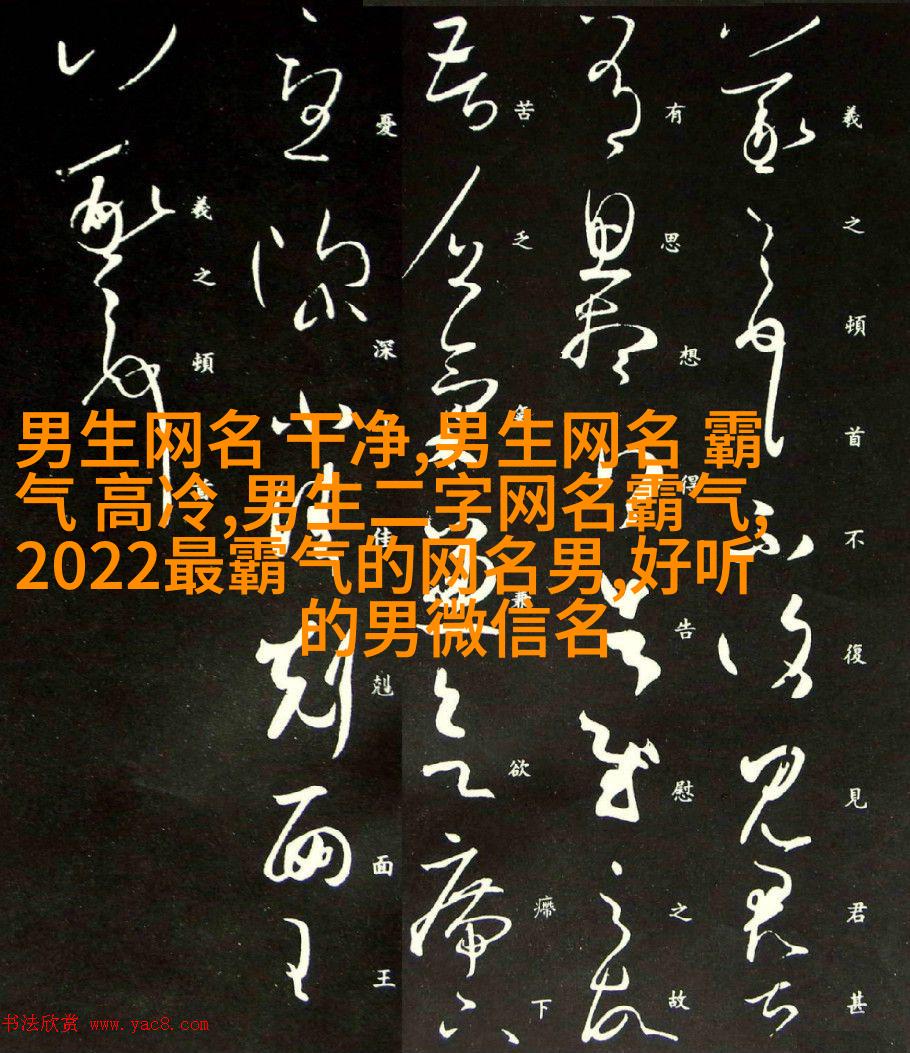 羲之頓首不復見君甚
有思想得告慰之故
苦乏兼欲㿃下
憂深佳剋面王
羲之頓
男生网名 干净,男生网名 霸
气 高冷,男生二字网名霸气,
2022最霸气的网名男,好听
的男微信名
书法欣赏 www.yac8.com